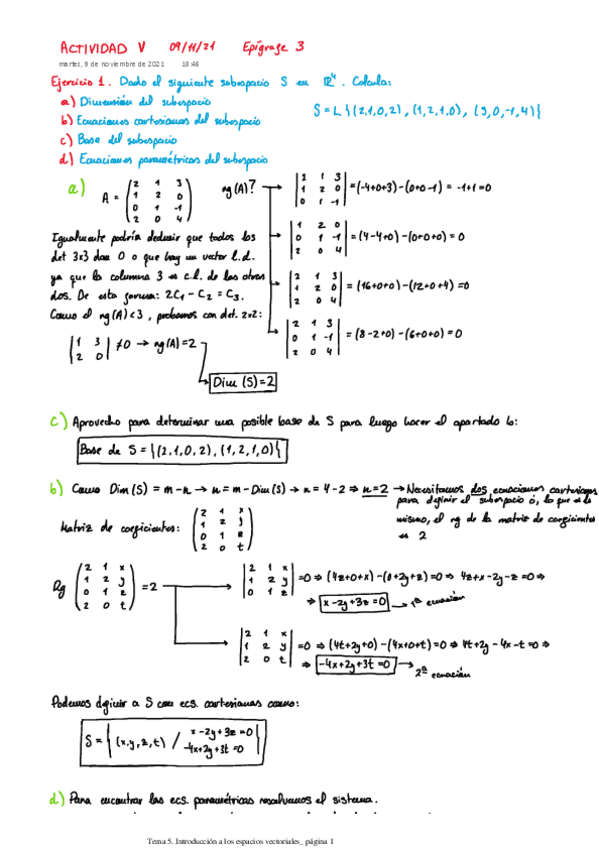 ACTIVIDAD V 09/11/21 Epígrafe 3
martes, 9 de noviembre de 2021 18:46
Ejercicio 1. Dado el siguiente subespacio S en ℝ⁴. Calcula:
a) Dimensión del subespacio
S = L {(2,1,0,2), (1,2,1,0), (3,0,-1,4)}
b) Ecuaciones cartesianas del subespacio
c) Base del subespacio
d) Ecuaciones paramétricas del subespacio
a) A = (2 1 3 / 1 2 0 / 0 1 -1 / 2 0 4) rg(A)? → |2 1 3 / 1 2 0 / 0 1 -1| = (-4+0+3)-(0+0-1) = -1+1=0
→ |1 2 0 / 0 1 -1 / 2 0 4| = (4-4+0)-(0+0+0) = 0
→ |2 1 3 / 1 2 0 / 2 0 4| = (16+0+0)-(12+0+4) = 0
→ |2 1 3 / 0 1 -1 / 2 0 4| = (8-2+0)-(6+0+0) = 0
Igualmente podría deducir que todos los
det 3x3 dan 0 o que hay un vector l.d.
ya que la columna 3 es c.l. de las otras
dos. De esta forma: 2C₁ - C₂ = C₃.
Como el rg(A)<3, probamos con det. 2x2:
|1 3 / 2 0| ≠0 → rg(A)=2
→ Dim (S)=2
c) Aprovecho para determinar una posible base de S para luego hacer el apartado b:
Base de S = {(2,1,0,2), (1,2,1,0)}
b) Como Dim(S) = m-n → n = m-Dim(S) → n = 4-2 ⇒ n=2 → Necesitamos dos ecuaciones cartesianas
para definir el subespacio ó, lo que es lo
mismo, el rg de la matriz de coeficientes
es 2
Matriz de coeficientes: (2 1 x / 1 2 y / 0 1 z / 2 0 t)
Rg (2 1 x / 1 2 y / 0 1 z / 2 0 t) = 2 → |2 1 x / 1 2 y / 0 1 z| =0 ⇒ (4z+0+x)-(0+2y+z)=0 ⇒ 4z+x-2y-z=0 ⇒
⇒ x-2y+3z=0 → 1ª ecuación
→ |2 1 x / 1 2 y / 2 0 t| =0 ⇒ (4t+2y+0)-(4x+0+t)=0 ⇒ 4t+2y-4x-t=0 ⇒
⇒ -4x+2y+3t=0 → 2ª ecuación
Podemos definir a S con ecs. cartesianas como:
S = {(x,y,z,t) / x-2y+3z=0 -4x+2y+3t=0}
d) Para encontrar las ecs. paramétricas resolvemos el sistema.
Tema 5. Introducción a los espacios vectoriales_ página 1